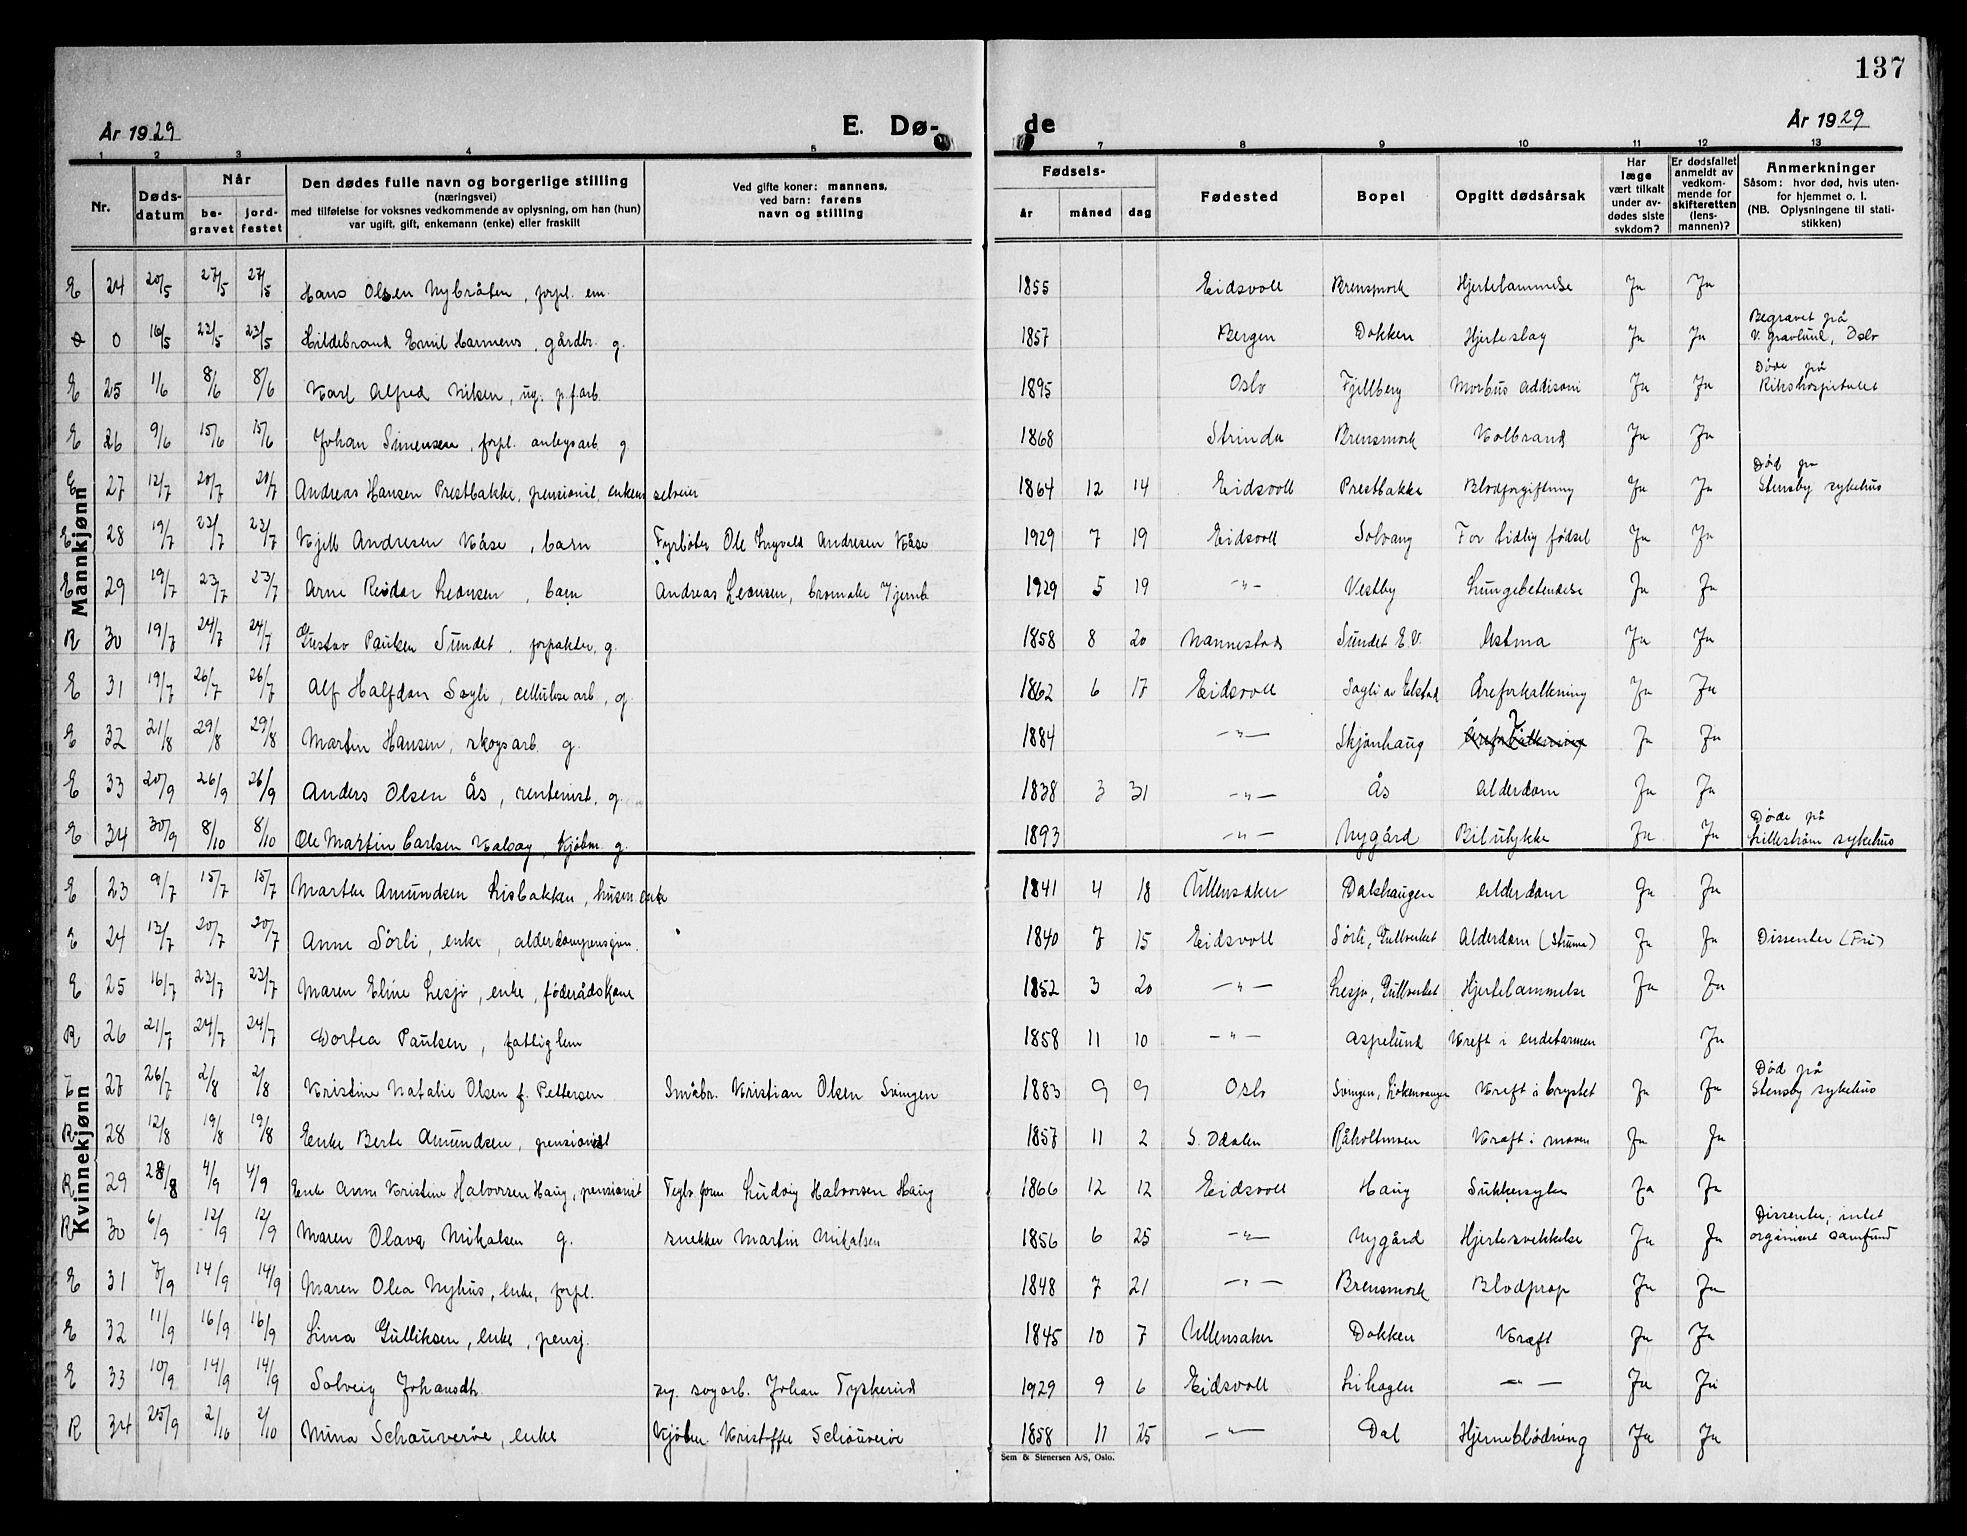 137
År 1929 E. Dø- de År 1929
1 2 3 4 5 7 8 9 10 11 12 13
Nr. Døds-datum Når be-gravet jord-festet
Den dødes fulle navn og borgerlige stilling
(næringsvei)
med tilføielse for voksnes vedkommende av oplysning, om han (hun)
var ugift, gift, enkemann (enke) eller fraskilt
Ved gifte koner: mannens,
ved barn: farens
navn og stilling
Fødsels- år måned dag
Fødested
Bopel
Opgitt dødsårsak
Har læge vært tilkalt under av-dødes siste sykdom?
Er dødsfallet anmeldt av vedkom-mende for skifteretten (lens-mannen)?
Anmerkninger
Såsom: hvor død, hvis uten-
for hjemmet o. l.
(NB. Oplysningene til stati-
stikken)
Mannkjønn
E 24 20/5 27/5 27/5 Hans Olsen Nybråten, forpl. em. 1855 Eidsvoll Brensmork Hjertelammelse Ja Ja
0 16/5 23/5 23/5 Hildebrand Emil Harmens, gårdbr. g. 1857 Bergen Dokken Hjerteslag Ja Ja Begravet på V. gravlund, Oslo
E 25 1/6 8/6 8/6 Karl Alfred Nilsen, ug. p.f.arb. 1895 Oslo Fjellberg Morbus Addisoni Ja Ja Døde på Rikshospitalet
E 26 9/6 15/6 15/6 Johan Simensen, forpl. anlegsarb. g. 1868 Strinda Brensmork Kolbrand Ja Ja
E 27 12/7 20/7 20/7 Andreas Hansen Prestbakke, pensionist, enkem selveier 1864 12 14 Eidsvoll Prestbakke Blodforgiftning Ja Ja Død på Stensby sykehus
E 28 19/7 23/7 23/7 Kjell Andresen Kåse, barn Fyrbøter Ole Ingvald Andresen Kåse 1929 7 19 Eidsvoll Solvang For tidlig fødsel Ja Ja
E 29 19/7 23/7 23/7 Arne Reidar Leonsen, barn Andreas Leonsen, bromake Jernb 1929 5 19 -"- Vestby Lungebetendelse Ja Ja
R 30 19/7 24/7 24/7 Gustav Paulsen Sundet, forpakter, g. 1858 8 20 Nannestad Sundet E.V. Astma Ja Ja
E 31 19/7 26/7 26/7 Alf Halfdan Sagli, cellulosearb, g. 1862 6 17 Eidsvoll Sagli av Elstad Åreforkalkning Ja Ja
E 32 21/8 29/8 29/8 Martin Hansen, skogsarb. g. 1884 -"- Skjønhaug Åreforkalkning ? Ja Ja
E 33 20/9 26/9 26/9 Anders Olsen Ås, rentenist, g. 1838 3 31 -"- Ås Alderdom Ja Ja
E 34 30/9 8/10 8/10 Ole Martin Carlsen, Kjøbm. g. 1893 -"- Nygård Bilulykke Ja Ja Døde på Lillestrøm sykehus
Kvinnekjønn
E 23 9/7 15/7 15/7 Marthe Amundsen Lisbakken, husm.enke 1841 4 18 Ullensaker Dalshaugen Alderdom Ja Ja
E 24 13/7 20/7 20/7 Anne Sørli, enke, alderdompensjon. 1840 7 15 Eidsvoll Sørli, Gullverket Alderdom (Struma) Ja Ja Dissenter (Fri)
E 25 16/7 23/7 23/7 Maren Eline Lesjø, enke, føderådskone 1852 3 20 -"- Lesjø, Gullverket Hjertelammelse Ja Ja
R 26 21/7 24/7 24/7 Dortea Paulsen, fattiglem 1858 11 10 -"- Aspelund Kreft i endetarmen Ja
E 27 26/7 2/8 2/8 Kristine Natalie Olsen f. Pettersen Småbr. Kristian Olsen Svingen 1883 9 9 Oslo Svingen, Løkenvangen Kreft i brystet Ja Ja Død på Stensby sykehus
R 28 12/8 19/8 19/8 Enke Berte Amundsen, pensionist 1857 11 2 S. Odalen Råholtmoen Kræft i maven Ja Ja
R 29 28/8 4/9 4/9 Enke Anne Kristine Halvorsen Haug, pensionist Teglv.form Ludvig Halvorsen Haug 1866 12 12 Eidsvoll Haug Sukkersyke Ja Ja
R 30 6/9 12/9 12/9 Maren Olava Mikalsen g. snekker Martin Mikalsen 1856 6 25 -"- Nygård Hjertesvekkelse Ja Ja Dissenter, intet organisert samfund
E 31 7/9 14/9 14/9 Maren Olea Nyhus, enke, forpl. 1848 7 21 -"- Brensmork Blodprop Ja Ja
E 32 11/9 16/9 16/9 Lina Gulliksen, enke, pensj. 1845 10 7 Ullensaker Dokken Kræft Ja Ja
E 33 10/9 14/9 14/9 Solveig Johansdtr. Johan Tyskerud 1929 9 6 Eidsvoll Lihagen -"- Ja Ja
R 34 25/9 2/10 2/10 Mina Schouverøe, enke Kjøbm. Kristoffer Schouverøe 1858 11 25 -"- Dal Hjerneblødning Ja Ja
Sem & Stenersen A/S, Oslo.